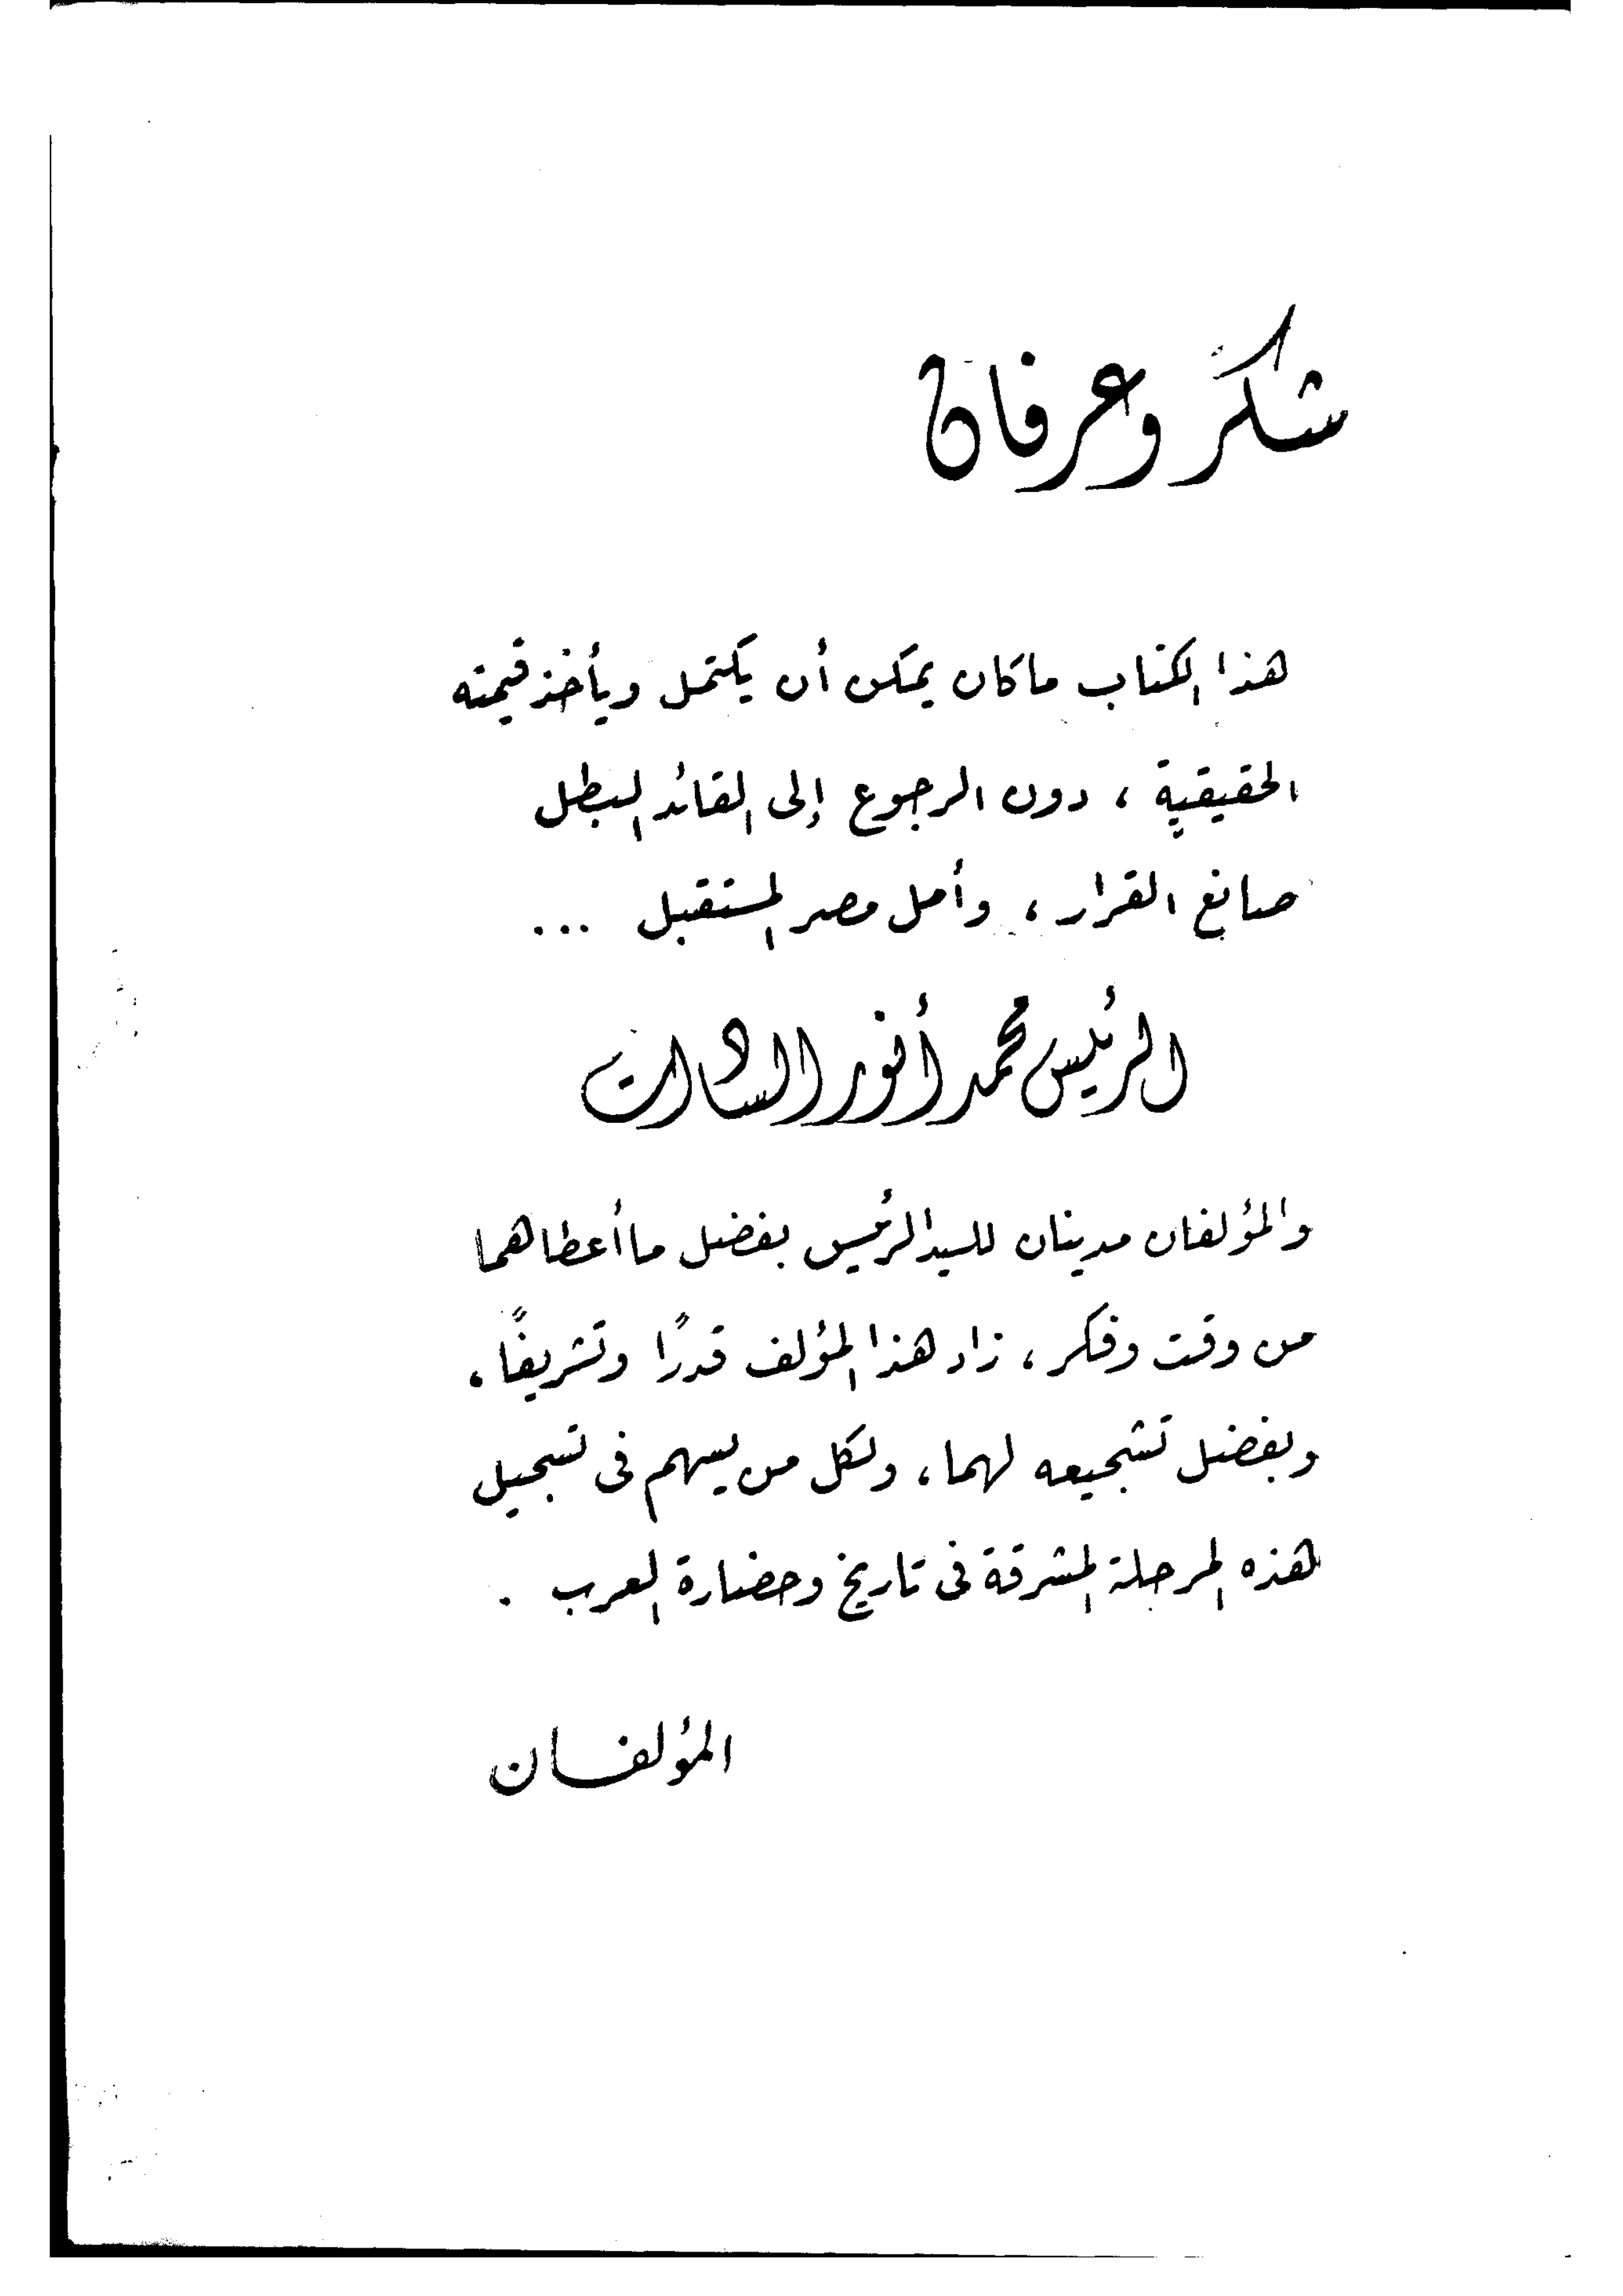 شكر وعرفان
هذا الكتاب ما كان يمكن أن يكتمل ويأخذ قيمته
الحقيقية ، دون الرجوع إلى القائد البطل
صانع القرار ، وأمل مصر المستقبل ...
الرئيس محمد أنور السادات
والمؤلفان مدينان للسيد الرئيس بفضل ما أعطاهما
من وقت وفكر ، زاد هذا المؤلف قدرًا وتشريفًا .
وبفضل تشجيعه لهما ، ولكل من يسهم فى تسجيل
هذه المرحلة المشرقة فى تاريخ وحضارة العرب .
المؤلفــان